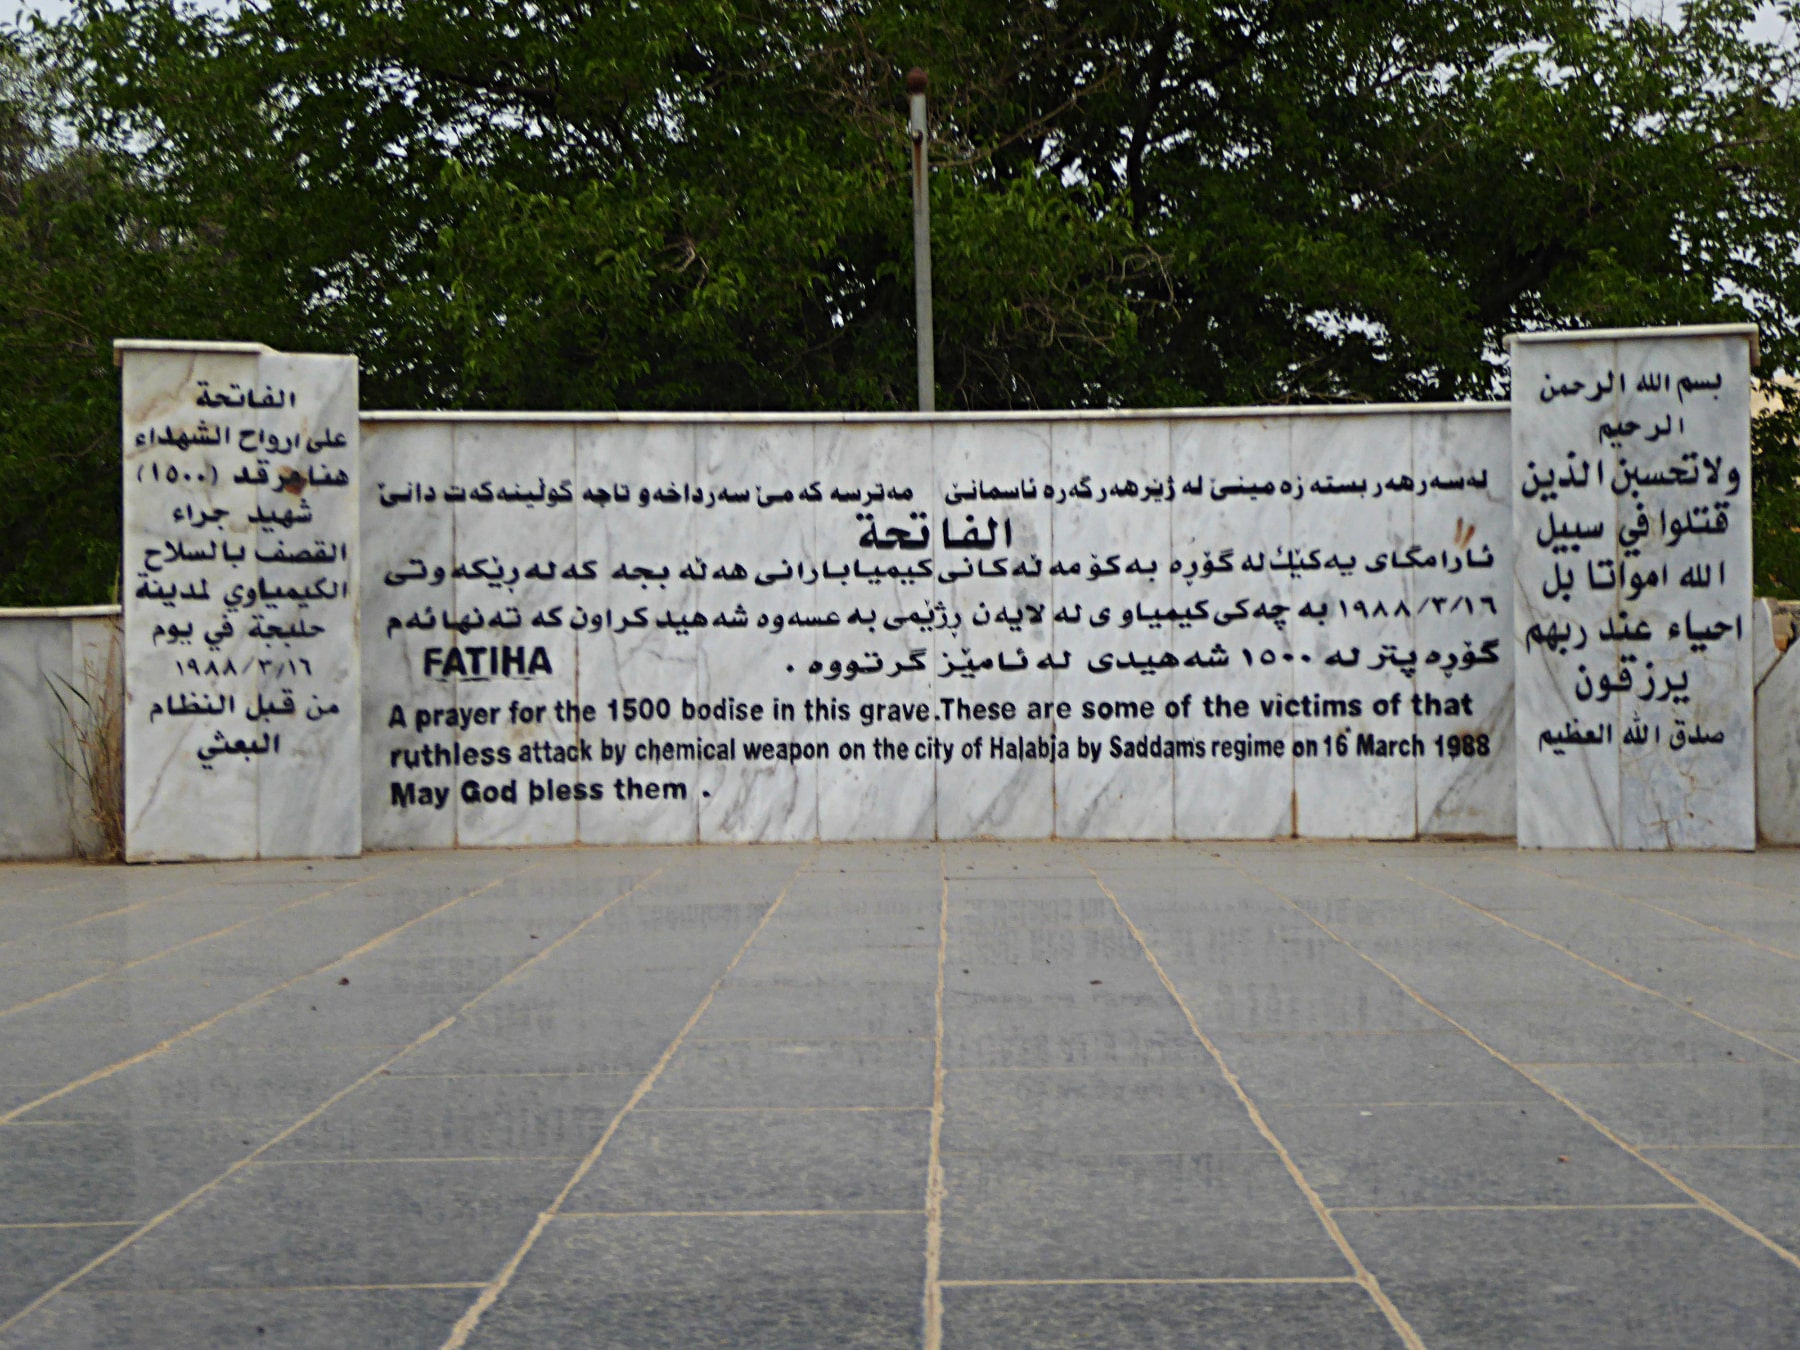 بسم الله الرحمن
الرحيم
ولاتحسبن الذين
قتلوا في سبيل
الله امواتا بل
احياء عند ربهم
يرزقون
صدق الله العظيم
لەسەرهەربستە زەمینێ لە ژێرهەرگەرە ئاسمانێ مەترسە کەمێ سەرداخەو تاچە گوڵینەکەت دانێ
الفاتحة
ئارامگای یەکێك لە گۆڕە بەکۆمەڵەکانی کیمیابارانی هەڵەبجە کەلەڕێکەوتی
١٩٨٨/٣/١٦ بە چەکی کیمیاوی لە لایەن ڕژێمی بەعسەوە شەهیدکراون کە تەنهائەم
گۆڕە پتر لە ١٥٠٠ شەهیدی لە ئامێز گرتووە .
FATIHA
A prayer for the 1500 bodise in this grave.These are some of the victims of that
ruthless attack by chemical weapon on the city of Halabja by Saddams regime on 16 March 1988
May God bless them .
الفاتحة
على ارواح الشهداء
هنا مرقد (١٥٠٠)
شهيد جراء
القصف بالسلاح
الكيمياوي لمدينة
حلبجة في يوم
١٩٨٨/٣/١٦
من قبل النظام
البعثي